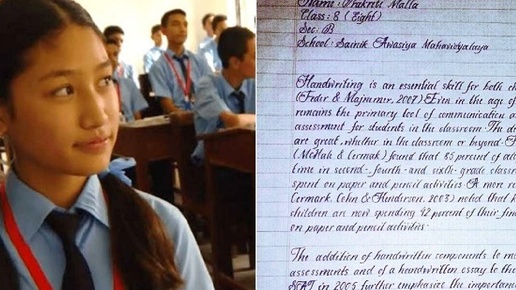 Name: Prakriti Malla
Class: 8 (Eight)
Sec: B
School: Sainik Awasiya Mahavidyalaya
Handwriting is an essential skill for both ch
(Feder & Majnemer, 2007) Even in the age of
remains the primary tool of communication a
assessment for students in the classroom. The d
are great, whether in the classroom or beyond.
(McHale & Cermak) found that 85 percent of
time in second-, fourth- and sixth-grade class
spent on paper and pencil activities. A more r
Cermark, Cohn & Henderson, 2003) noted that
children are now spending 42 percent of their fine
on paper and pencil activities.
The addition of handwritten components to
assessments and of a handwritten essay to the
SAT in 2005 further emphasize the importan